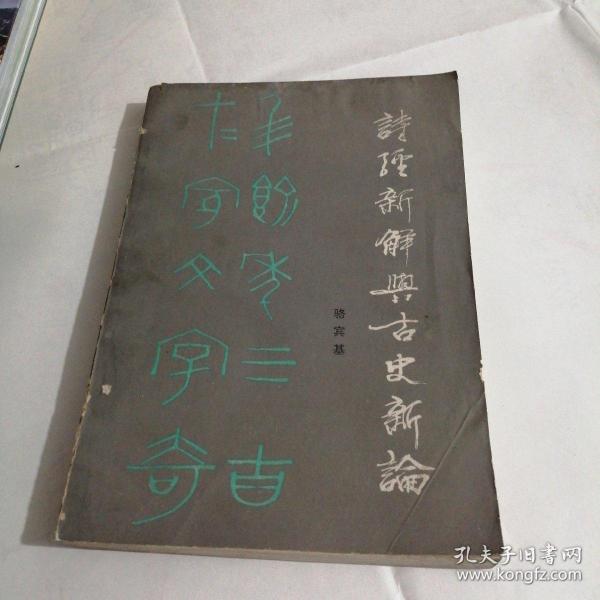 詩經新解與古史新論
骆宾基
二古
文字奇
孔夫子旧书网
www.kongfz.com